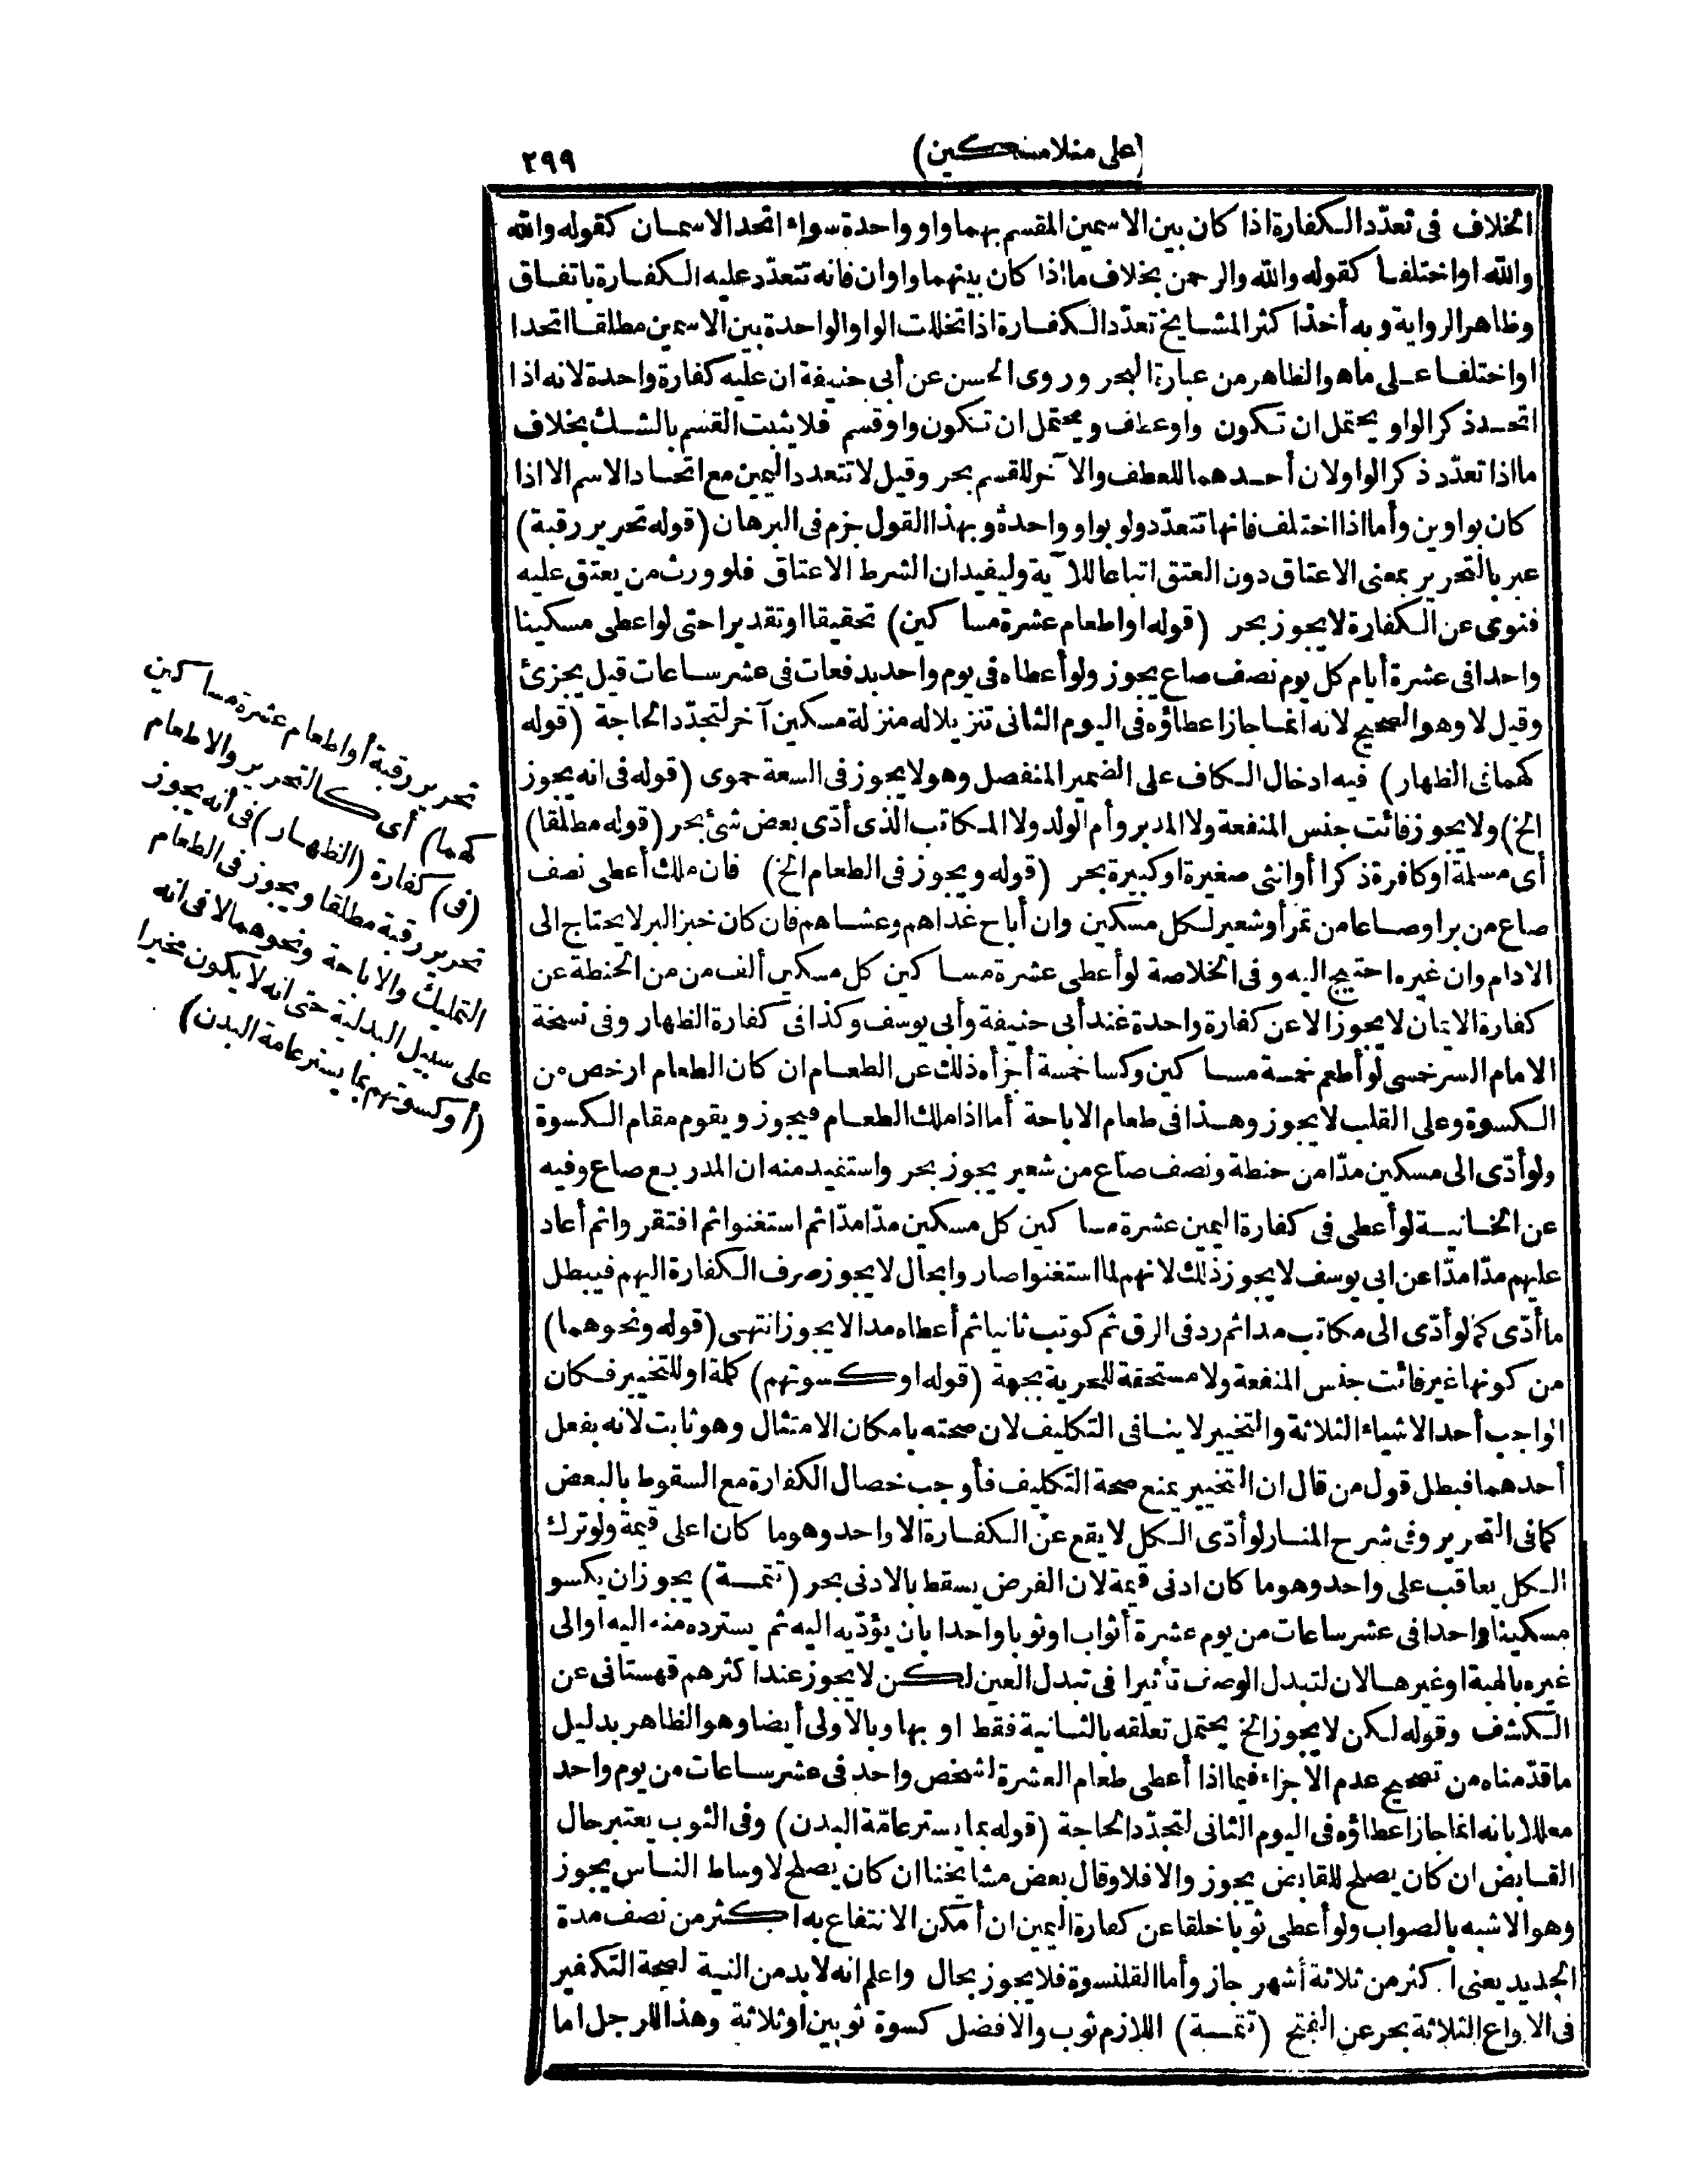 (على منلا مسكين)
٢٩٩
الخلاف فى تعدّد الكفارة اذا كان بين الاسمين المقسم بهما واو واحدة سواء اتحد الاسمان كقوله والله
والله او اختلفا كقوله والله والرحمن بخلاف ما اذا كان بينهما واوان فانه تتعدّد عليه الكفارة باتفاق
وظاهر الرواية وبه أخذ اكثر المشايخ تعدّد الكفارة اذا تخللت الواو الواحدة بين الاسمين مطلقا اتحدا
او اختلفا على ما هو الظاهر من عبارة البحر وروى الحسن عن أبى حنيفة ان عليه كفارة واحدة لانه اذا
اتحد ذكر الواو يحتمل ان تكون واو عطف ويحتمل ان تكون واو قسم فلا يثبت القسم بالشك بخلاف
ما اذا تعدّد ذكر الواو لان أحدهما للعطف والآخر للقسم بحر وقيل لا تتعدد اليمين مع اتحاد الاسم الا اذا
كان بواوين وأما اذا اختلف فانها تتعدّد ولو بواو واحدة وبهذا القول جزم فى البرهان (قوله تحرير رقبة)
عبر بالتحرير بمعنى الاعتاق دون العتق اتباعا للآية وليفيد ان الشرط الاعتاق فلو ورث من يعتق عليه
فنوى عن الكفارة لا يجوز بحر (قوله او اطعام عشرة مساكين) تحقيقا او تقديرا حتى لو اعطى مسكينا
واحدا فى عشرة أيام كل يوم نصف صاع يجوز ولو أعطاه فى يوم واحد بدفعات فى عشر ساعات قيل يجزئ
وقيل لا وهو الصحيح لانه انما جاز اعطاؤه فى اليوم الثانى تنزيلا له منزلة مسكين آخر لتجدّد الحاجة (قوله
كهما فى الظهار) فيه ادخال الكاف على الضمير المنفصل وهو لا يجوز فى السعة حموى (قوله فى انه يجوز
الخ) ولا يجوز فائت جنس المنفعة ولا المدبر وأم الولد ولا المكاتب الذى أدّى بعض شئ بحر (قوله مطلقا)
أى مسلمة او كافرة ذكرا أو انثى صغيرة او كبيرة بحر (قوله ويجوز فى الطعام الخ) فان ملك أعطى نصف
صاع من بر او صاعا من تمر أو شعير لكل مسكين وان أباح غداهم وعشاهم فان كان خبز البر لا يحتاج الى
الادام وان غيره احتيج اليه وفى الخلاصة لو أعطى عشرة مساكين كل مسكين ألف من من الحنطة عن
كفارة الايمان لا يجوز الا عن كفارة واحدة عند أبى حنيفة وأبى يوسف وكذا فى كفارة الظهار وفى نسخة
الامام السرخسى لو أطعم خمسة مساكين وكسا خمسة أجزأه ذلك عن الطعام ان كان الطعام ارخص من
الكسوة وعلى القلب لا يجوز وهذا فى طعام الاباحة أما اذا ملك الطعام فيجوز ويقوم مقام الكسوة
ولو أدّى الى مسكين مدّا من حنطة ونصف صاع من شعير يجوز بحر واستفيد منه ان المد ربع صاع وفيه
عن الخانية لو أعطى فى كفارة اليمين عشرة مساكين كل مسكين مدّا مدّا ثم استغنوا ثم افتقروا ثم أعاد
عليهم مدّا مدّا عن ابى يوسف لا يجوز ذلك لانهم لما استغنوا صاروا بحال لا يجوز صرف الكفارة اليهم فيبطل
ما أدّى كمن لو أدّى الى مكاتب مدا ثم رد فى الرق ثم كوتب ثانيا ثم أعطاه مدا لا يجوز انتهى (قوله ونحوهما)
من كونها غير فائت جنس المنفعة ولا مستحقة للحرية بجهة (قوله او كسوتهم) كلمة او للتخيير فكان
الواجب أحد الاشياء الثلاثة والتخيير لا ينافى التكليف لان صحته بامكان الامتثال وهو ثابت لانه بفعل
أحدهما فبطل قول من قال ان التخيير يمنع صحة التكليف فأوجب خصال الكفارة مع السقوط بالبعض
كما فى التحرير وفى شرح المنار لو أدّى الكل لا يقع عن الكفارة الا واحد وهو ما كان اعلى قيمة ولو ترك
الكل يعاقب على واحد وهو ما كان ادنى قيمة لان الفرض يسقط بالادنى بحر (تتمة) يجوز ان يكسو
مسكينا واحدا فى عشر ساعات من يوم عشرة أثواب او ثوبا واحدا بان يؤدّيه اليه ثم يسترده منه اليه او الى
غيره بالهبة او غيرها لان لتبدل الوصف تأثيرا فى تبدل العين لكن لا يجوز عند اكثرهم قهستانى عن
الكشف وقوله لكن لا يجوز الخ يحتمل تعلقه بالثانية فقط او بها وبالاولى أيضا وهو الظاهر بدليل
ما قدّمناه من تصحيح عدم الاجزاء فيما اذا أعطى طعام العشرة لشخص واحد فى عشر ساعات من يوم واحد
معللا بانه انما جاز اعطاؤه فى اليوم الثانى لتجدّد الحاجة (قوله بما يستر عامّة البدن) وفى الثوب يعتبر حال
القابض ان كان يصلح للقابض يجوز والا فلا وقال بعض مشايخنا ان كان يصلح لاوساط الناس يجوز
وهو الاشبه بالصواب ولو أعطى ثوبا خلقا عن كفارة اليمين ان أمكن الانتفاع به اكثر من نصف مدة
الجديد يعنى اكثر من ثلاثة أشهر جاز وأما القلنسوة فلا يجوز بحال واعلم انه لا بد من النية لصحة التكفير
فى الانواع الثلاثة بحر عن الفتح (تتمة) اللازم ثوب والافضل كسوة ثوبين او ثلاثة وهذا للرجل اما
تحرير رقبة أو اطعام عشرة مساكين
كهما) أى كالتحرير والاطعام
(فى) كفارة (الظهار) فى أنه يجوز
تحرير رقبة مطلقا ويجوز فى الطعام
التمليك والاباحة ونحوهما لا فى انه
على سبيل البدلية حتى انه لا يكون مخيرا
(أو كسوتهم بما يستر عامة البدن)